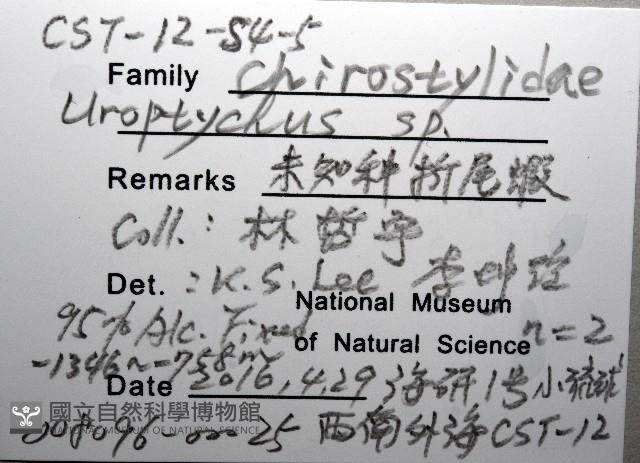 CST-12-S4-5
Family Chirostylidae
Uroptychus sp.
Remarks 未知種折尾蝦
Coll.: 林哲宇
Det.: K.S. Lee 李坤瑄
National Museum
95% Alc. Fixed of Natural Science n=2
-1346~-758m
Date 2016,4,29 海研1號小琉球
國立自然科學博物館
NATIONAL MUSEUM OF NATURAL SCIENCE
25 西南外海CST-12